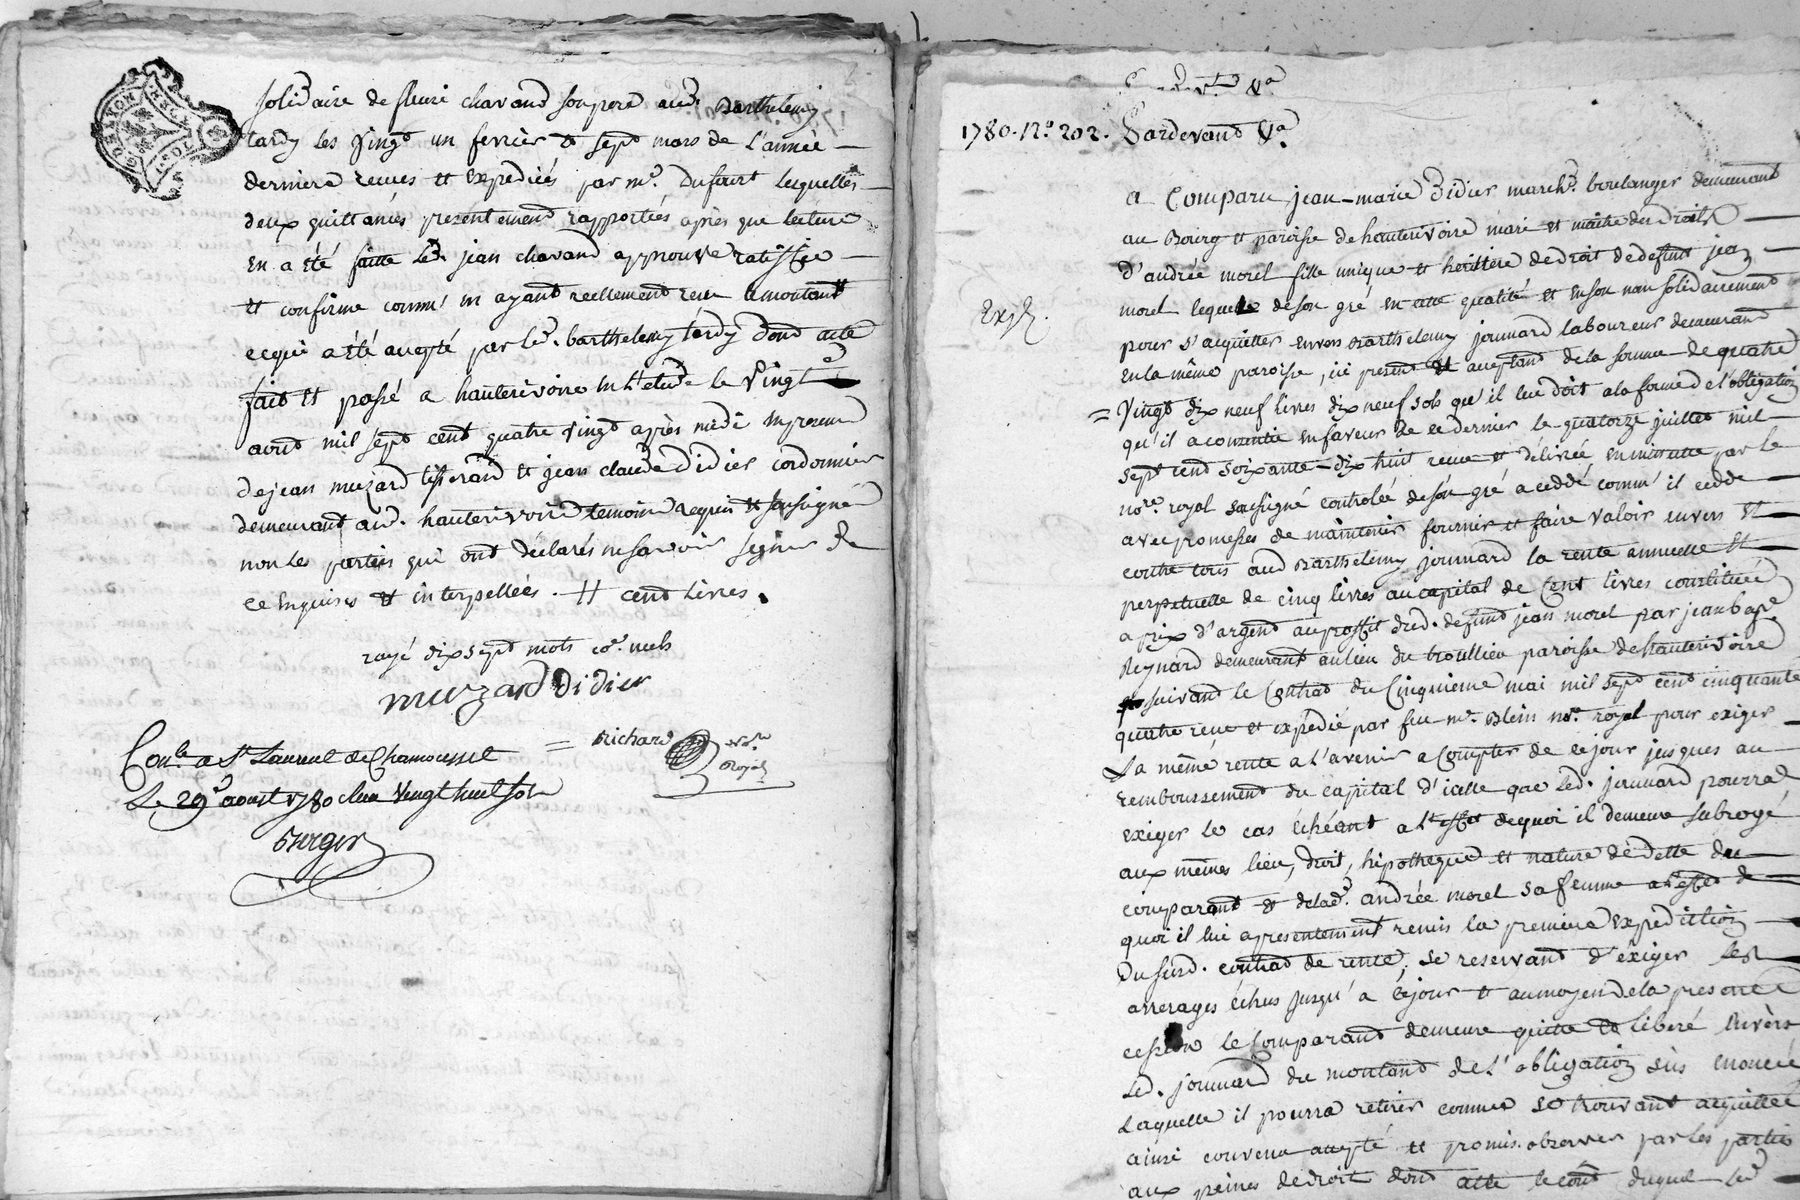 solidaire de fleuri chavand son pere aud. Barthelemy
tardy les vingt un fevrier & sept mars de l'année
derniere recues et expediées par me. Dufourt lesquelles
deux quittances presentement rapportées après que lecture
en a été faitte led. jean chavand approuve ratiffie
et confirme comme en ayant reellement recu le montant
ce qui a été accepté par led. barthelemy tardy dont acte
fait et passé a hauterivoire en l'etude le vingt
aoust mil sept cent quatre vingt après midi en presence
de jean muzard tisserand et jean claude didier cordonnier
demeurant aud. hauterivoire temoins requis & soussignés
non les parties qui ont déclarés ne savoir signer de
ce enquises & interpellées. # cent livres.
rayé dix sept mots co. nuls
muzard Didier
Richard Nre. Royal
Conlé a St Laurent de Chamousset
Le 29 aoust 1780 Vingt huit sols
Borger
1780. No. 202. Pardevant &a.
a Comparu jean-marie Didier march. boulanger demeurant
au Bourg et paroisse de hauterivoire mari et maitre des droits
d'andrée morel fille unique et heritiere de droit de defunt jean
morel lequel de son gré en cette qualité et en son nom solidairement
Exp.
pour s'acquitter envers Barthelemy jounard laboureur demeurant
en la même paroisse, ici present et acceptant de la somme de quatre
= vingt dix neuf livres dix neuf sols qu'il lui doit a la forme de l'obligation
qu'il a consentie en faveur de ce dernier le quatorze juillet mil
sept cent soixante-dix huit recue et délivrée en minutte par le
nore. royal soussigné controlée de son gré a ceddé comme il cedde
avec promesses de maintenir fournir et faire valoir envers et
contre tous aud Barthelemy jounard la rente annuelle et
perpetuelle de cinq livres au capital de Cent livres constituée
a prix d'argent au proffit dud. defunt jean morel par jean bapt.
Reynard demeurant au lieu du trouillieu paroisse de hauterivoire
suivant le Contrat du Cinquieme mai mil sept cent cinquante
quatre recu et expedié par feu me. Blein nore. royal pour exiger
La même rente a l'avenir a Compter de ce jour jusques au
remboursement du capital d'icelle que led. jounard pourra
exiger le cas échéant a l'effet de quoi il demeure subrogé
aux mêmes lieu, droit, hipotheque et nature de dette du
comparant & de lad. andrée morel sa femme a l'effet de
quoi il lui a presentement remis la premiere expedition
Du susd. contrat de rente, se reservant d'exiger les
arrerages échus jusqu'a ce jour et au moyen de la presente
cession le Comparant demeure quitte et liberé envers
led. jounard du montant de l'obligation sus enoncée
laquelle il pourra retirer comme se trouvant acquittée
ainsi convenu accepté et promis observer par les parties
aux peines de droit dont acte le cont. duquel les